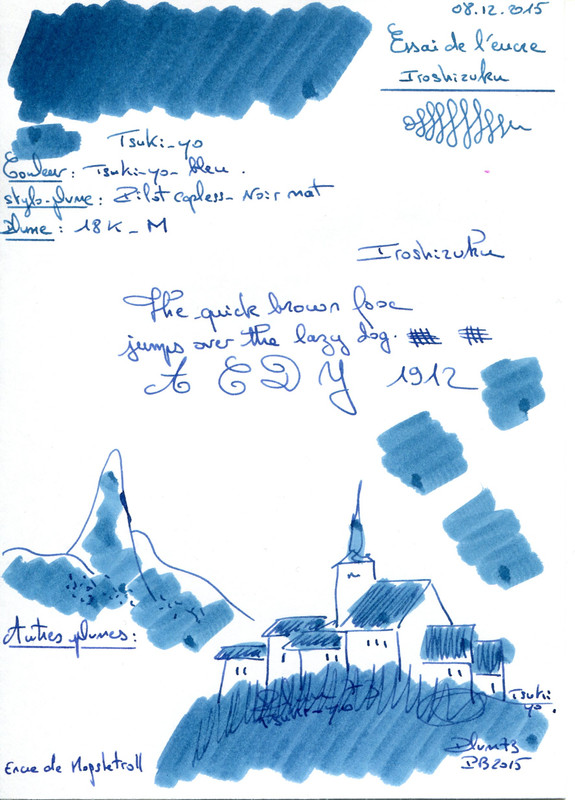 08.12.2015
Essai de l'encre
Iroshizuku
Tsuki-yo
Couleur : Tsuki-yo- bleu .
stylo-plume : Pilot capless- Noir mat
Plume : 18K - M
Iroshizuku
The quick brown foxe
jumps over the lazy dog.
A E D Y 1912
Autres plumes :
Tsuki
yo.
Tsuki-yo
Plum73
Encre de Mopsketroll
PB2015